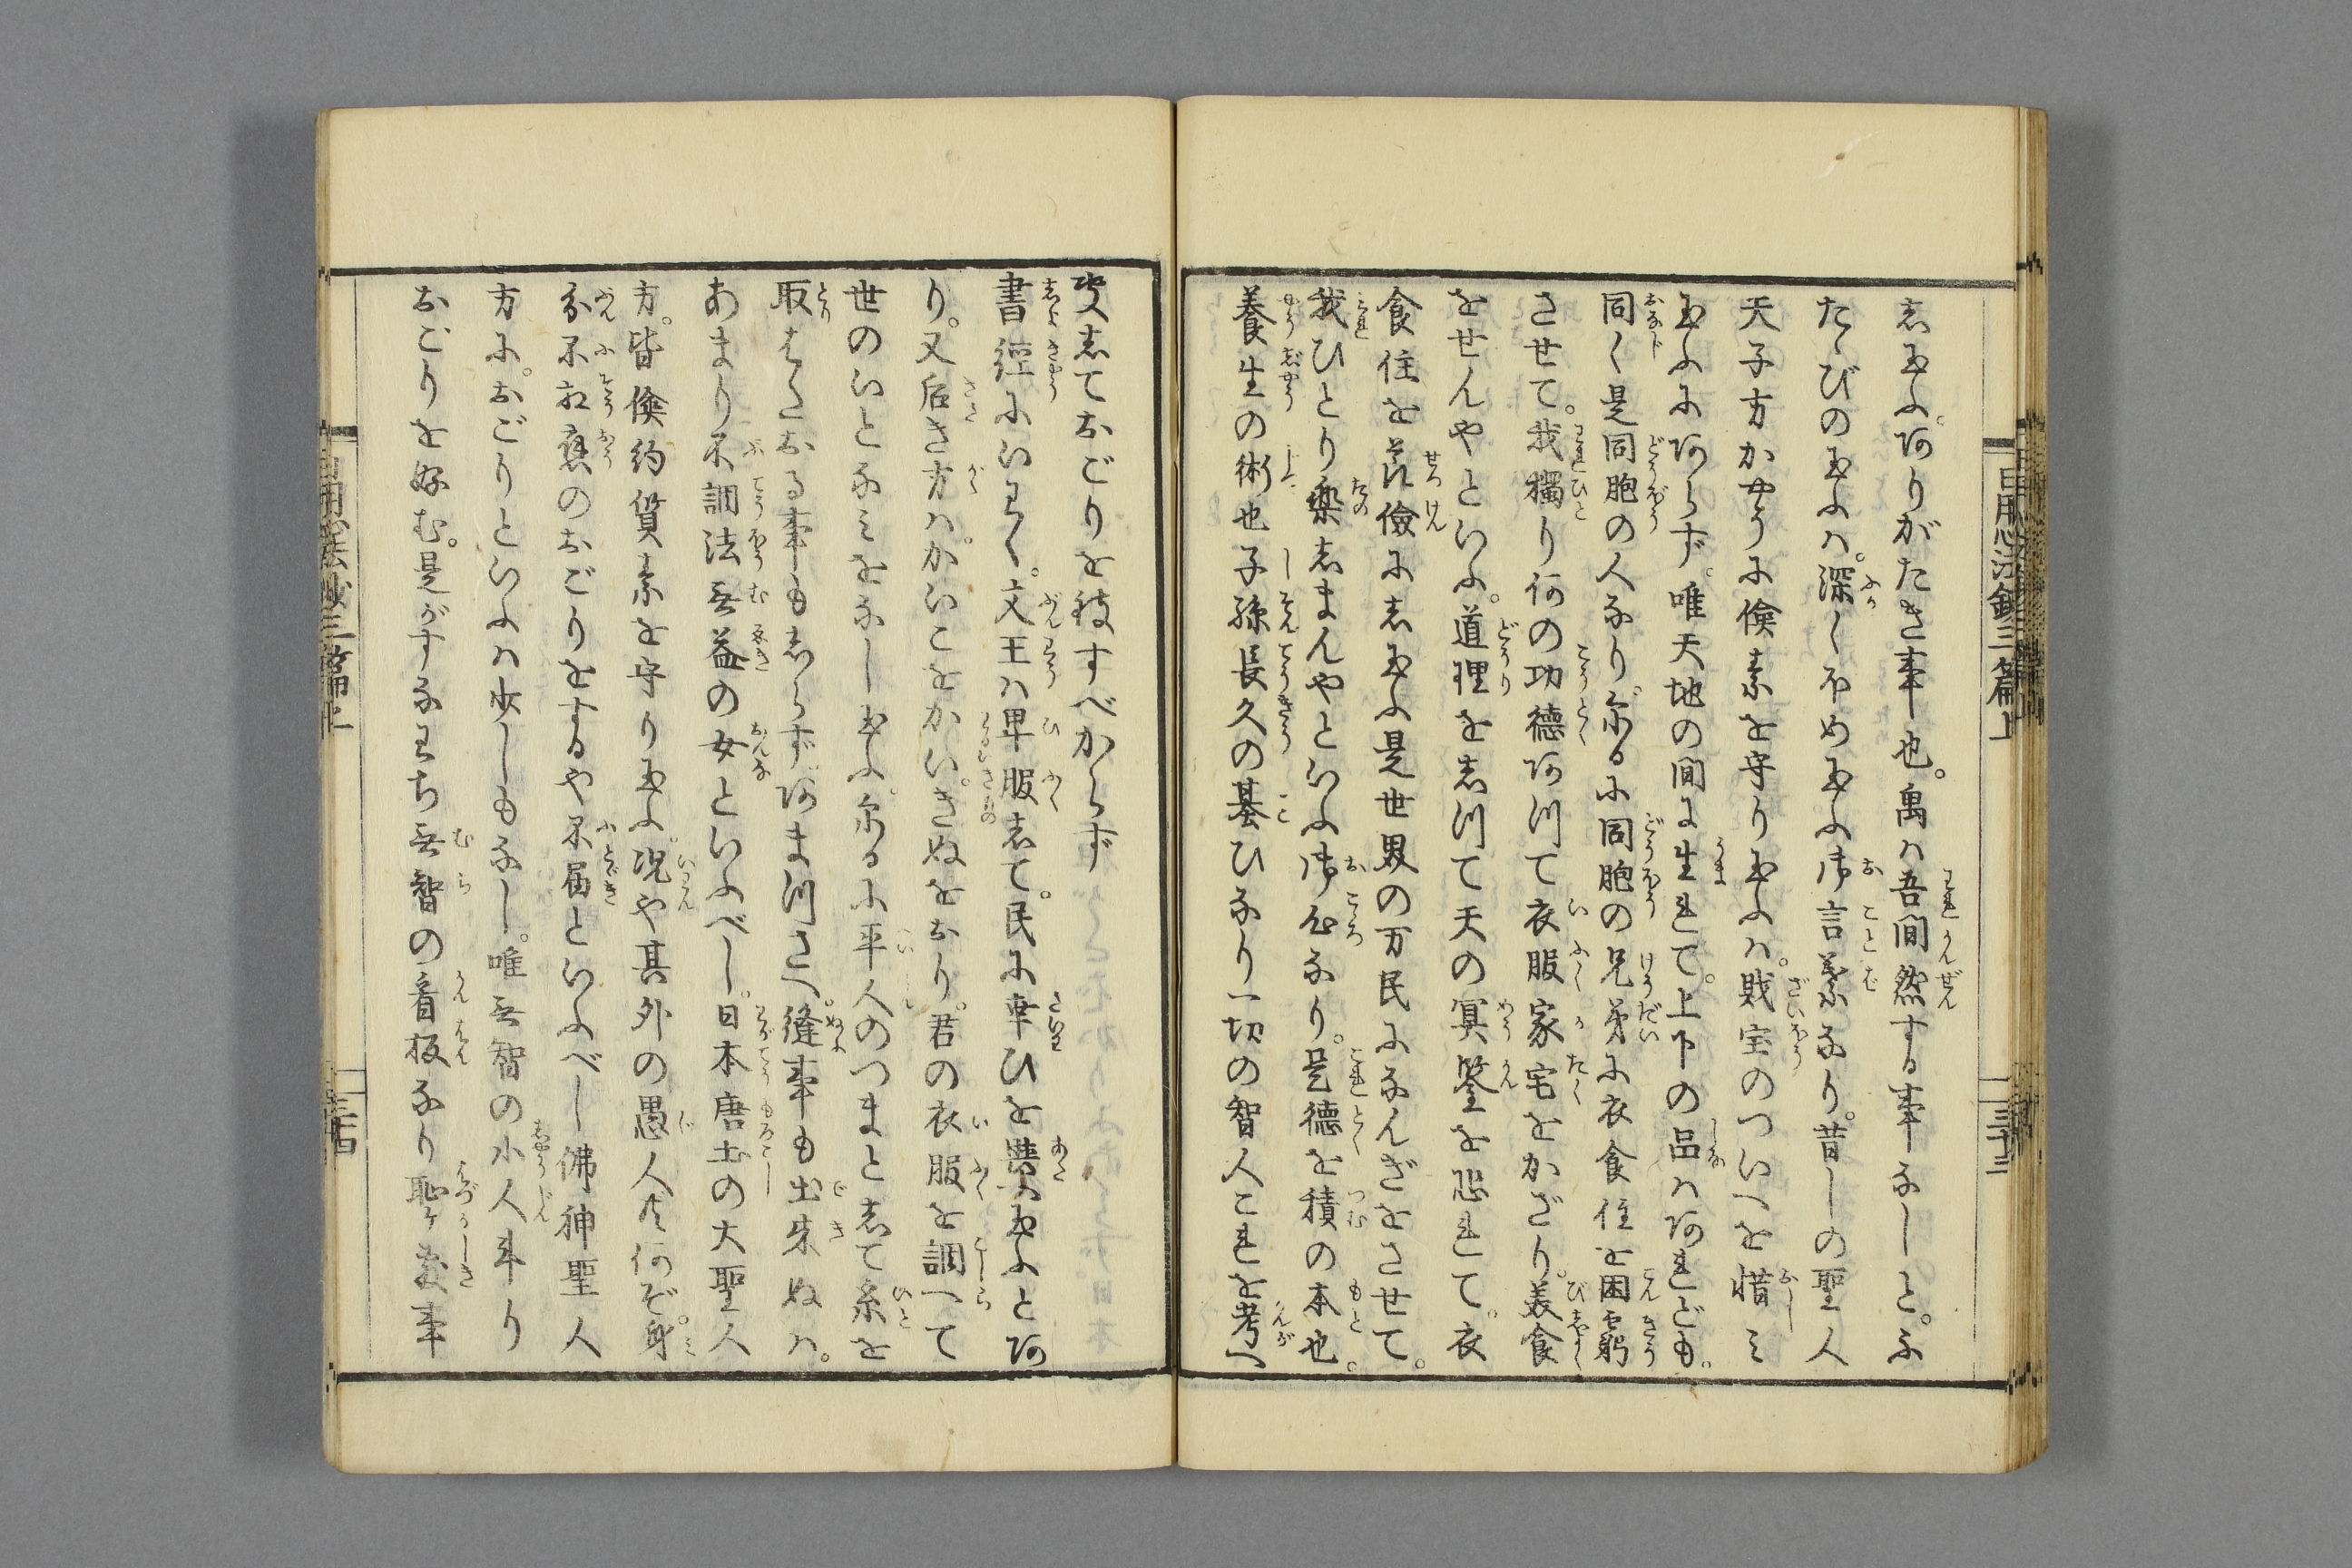 志玉ふ。ありがたき事也。禹ハ吾間然する事なしと。ふ
たゝびのまふハ。深くほめ玉ふ御言葉なり。昔しの聖人
天子方かやうに倹素を守り玉ふハ。財宝のついへを惜ミ
玉ふにあらず。唯天地の間に生れて。上下の品ハあれども。
同く是同胞の人なり。尓るに同胞の兄弟に衣食住を困窮
させて。我獨り何の功德あつて衣服家宅をかざり。美食
をせんやといふ。道理を志つて天の冥鑒を恐れて。衣
食住を節儉に志玉ふ是世界の万民になんぎをさせて。
我ひとり樂志まんやといふ御心なり。是德を積の本也。
養生の術也子孫長久の基ひなり一切の智人これを考へ
志ておごりを禁すべからず
書經にいわく。文王ハ卑服志て。民に幸ひを與へ玉ふとあ
り。又后き方ハ。かいこをかい。きぬをおり。君の衣服を調へて
世のいとなミをなし玉ふ。尓るに平人のつまと志て糸を
取はたおる事も志らず。あまつさへ。縫事も出来ぬハ。
あまり不調法無益の女といふべし。日本唐土の大聖人
方。皆倹約質素を守り玉ふ。况や其外の愚人共何ぞ。身
分不相應のおごりをするや不届といふべし佛神聖人
方に。おごりといふハ少しもなし。唯無智の小人斗り
おごりを好む。是がすなわち無智の看板なり耻ヶ敷事
日用心法鈔三篇上
三十三
日用心法鈔三篇上
三十四